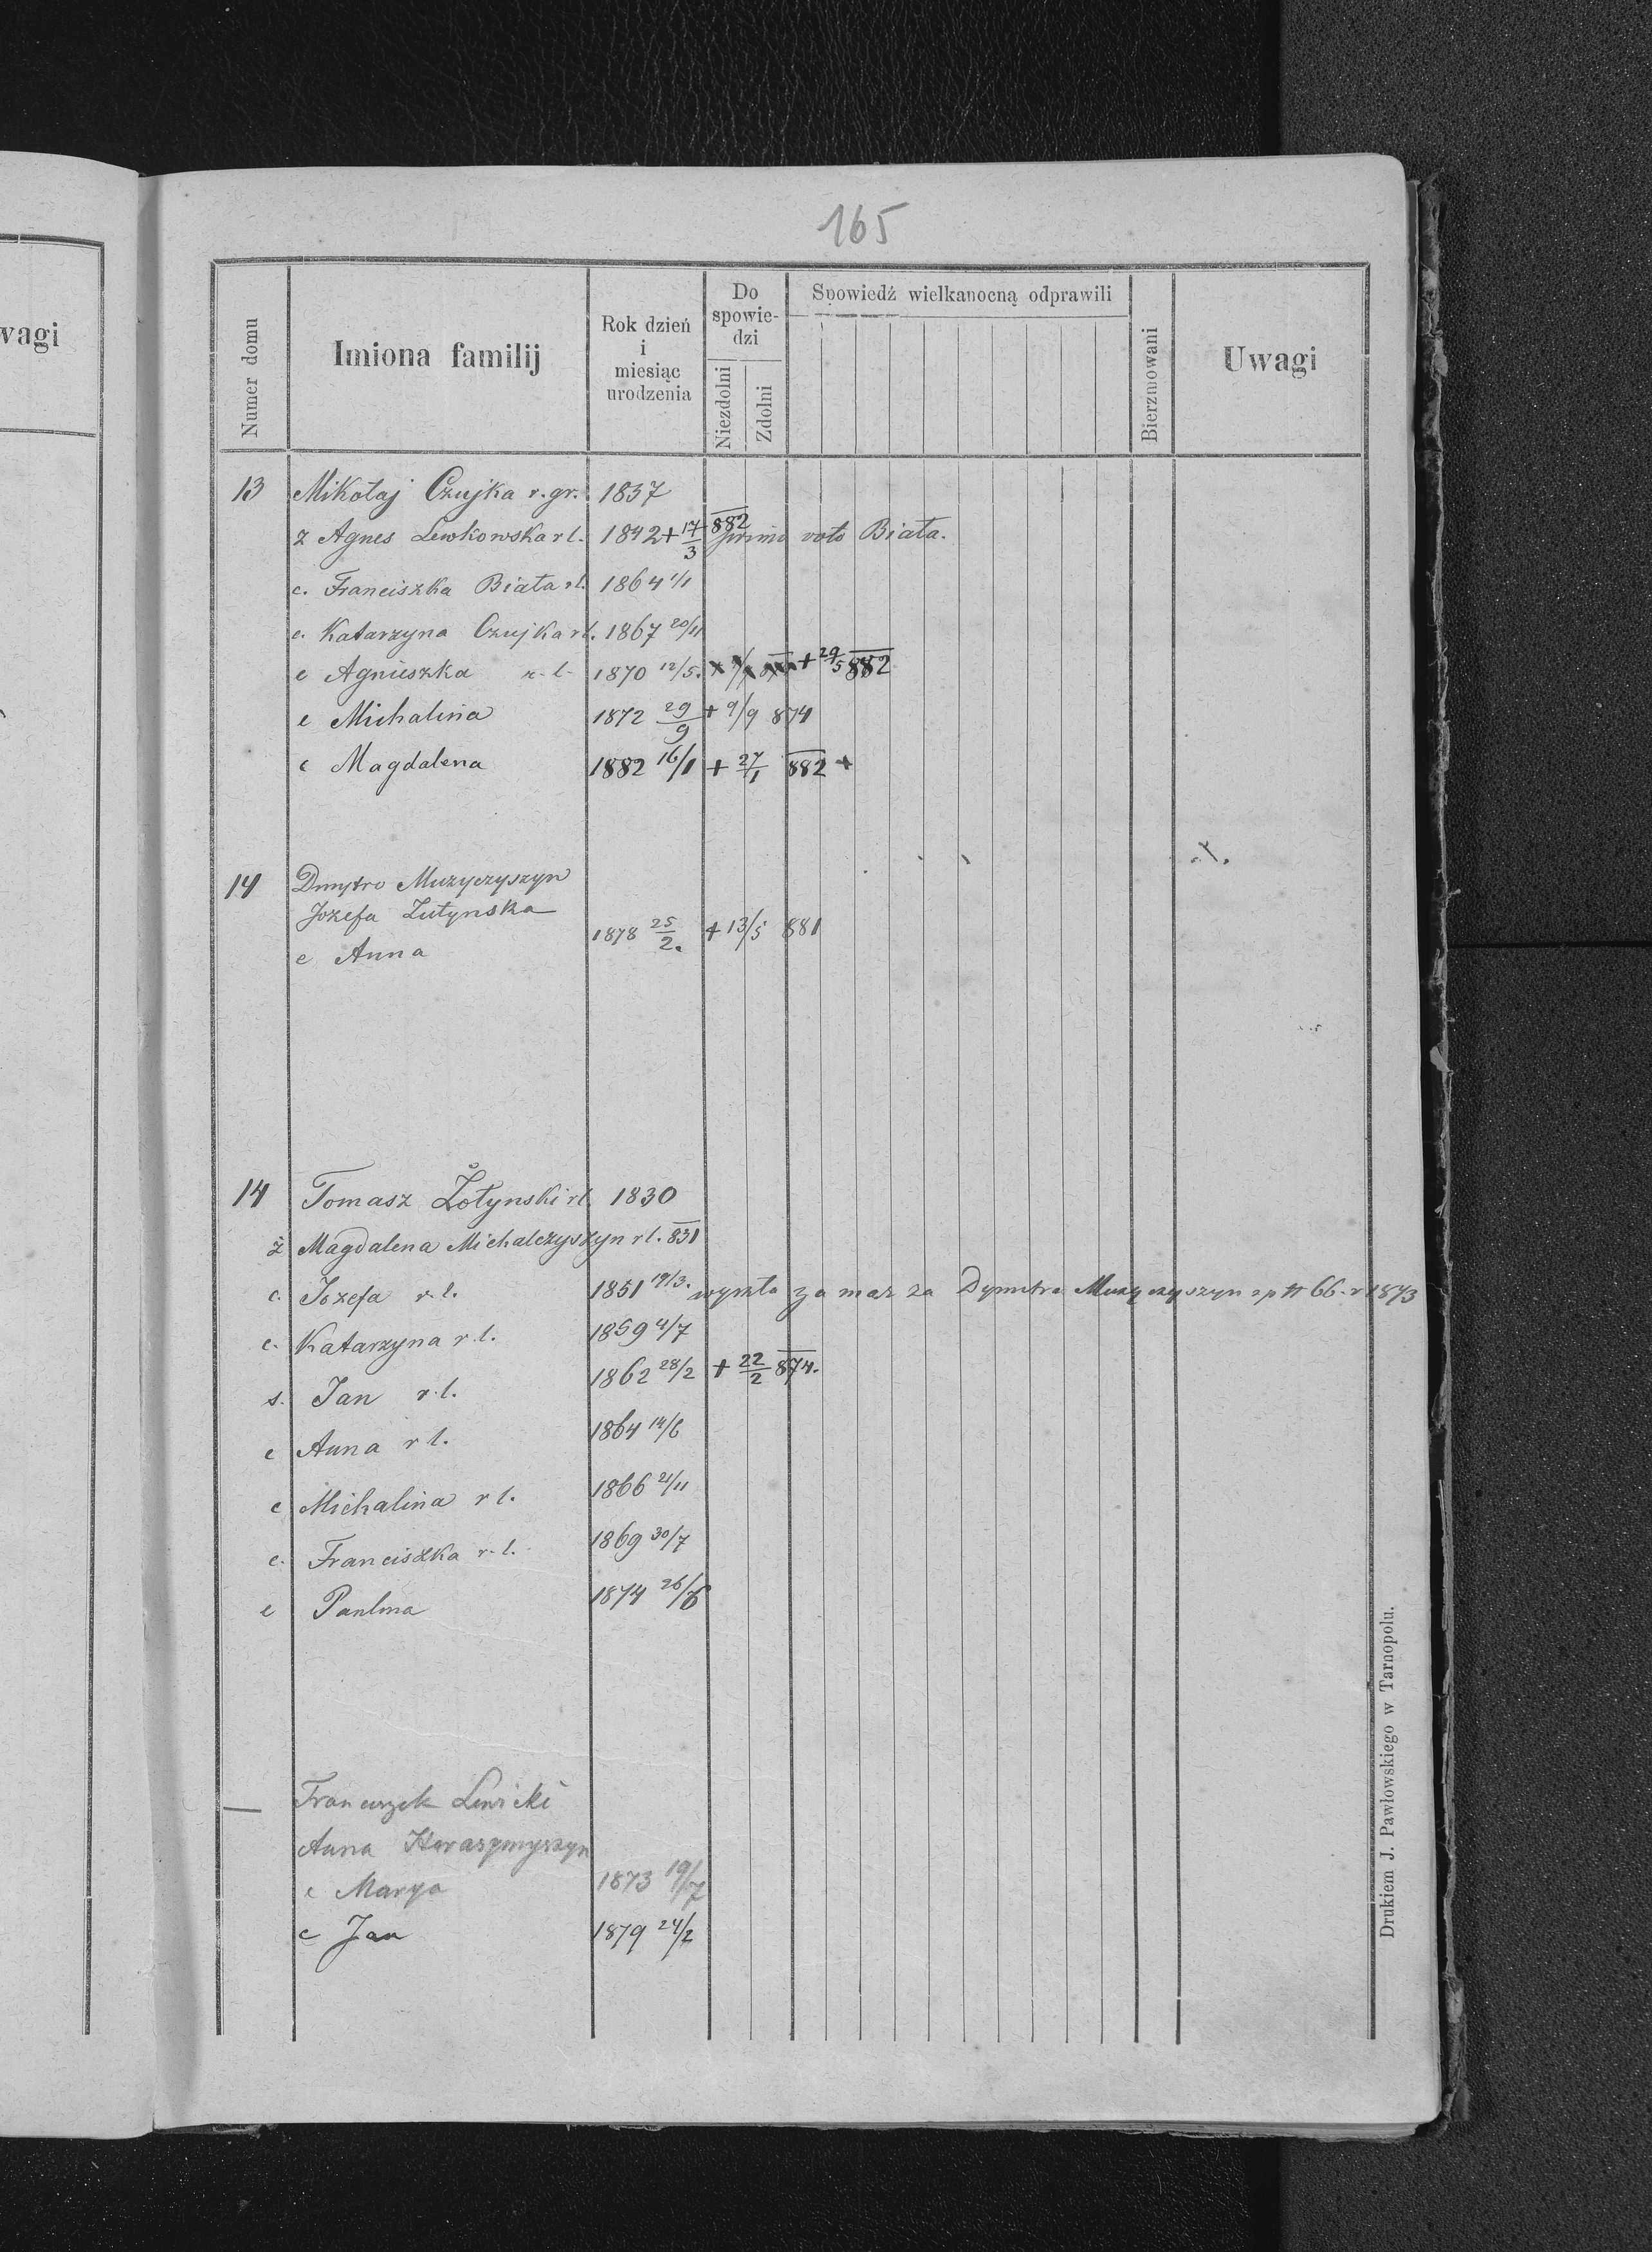 wagi
165
Numer domu
Imiona familij
Rok dzień i miesiąc urodzenia
Do spowiedzi
Niezdolni
Zdolni
Spowiedź wielkanocną odprawili
Bierzmowani
Uwagi
13 Mikołaj Czujka r. gr. 1837
ż Agnes Lewkowska r l. 1842 + 17/3 882 primo voto Biała.
c. Franciszka Biała rl. 1864 1/1
c. Katarzyna Czujka rl. 1867 20/11
c Agnieszka r. l. 1870 12/5. + 29/5 882
c Michalina 1872 29/9 + 9/9 874
c Magdalena 1882 16/1 + 27/1 882 +
14 Dmytro Muzyczyszyn
Jozefa Zutynska
c Anna 1878 25/2. + 13/5 881
14 Tomasz Żotynski rl. 1830
ż Magdalena Michalczyszyn rl. 831
c. Jozefa r. l. 1851 19/3. wyszła za maz za Dymitra Muzyczyszyn sp # 66 r 1873
c. Katarzyna r. l. 1859 4/7
s. Jan r. l. 1862 28/2 + 22/2 874.
c Anna r l. 1864 14/6
c Michalina r l. 1866 21/11
c. Franciszka r. l. 1869 30/7
c Paulina 1874 26/6
— Franciszek Lewicki
Anna
c Marya 1873 19/7
c Jan 1879 24/2
Drukiem J. Pawłowskiego w Tarnopolu.